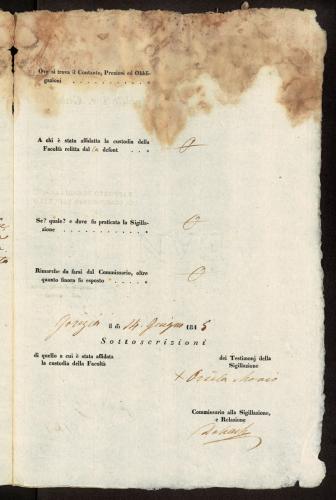 Ove si trova il Contante, Preziosi ed Obbli-
gazioni . . . . . . . . . . . .
A chi è stata affidata la custodia della
Facoltà relitta dal la defont . . .
Se? quale? e dove fu praticata la Sigilla-
zione . . . . . . . . . . . .
Rimarche da farsi dal Commissario, oltre
quanto finora fu esposto . . . . .
Gorizia il dì 14 Giugno 184
Sottoscrizioni
di quello a cui è stata affidata
la custodia della Facoltà
dei Testimonj della
Sigillazione
+ Orsola
Commissario alla Sigillazione,
e Relazione